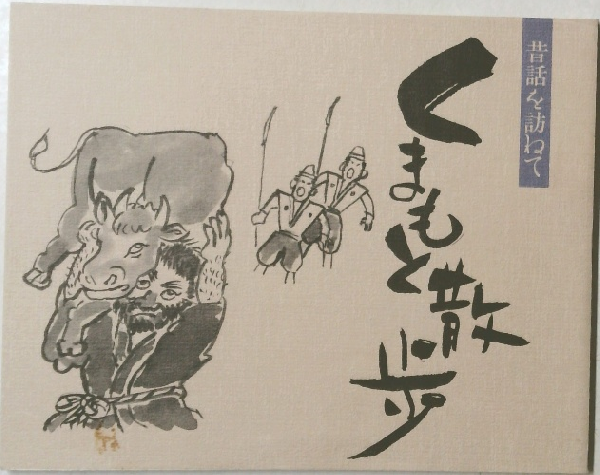 昔話を訪ねて
くまもと散歩